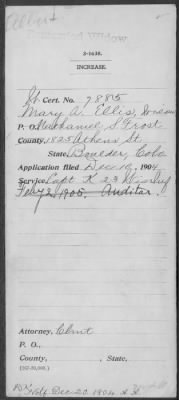 Albert
3-1638.
INCREASE.
Cert. No. 7885
Mary A. Ellis,
P. O., Nathaniel S Frost
County, 1825 Athens St.
State, Boulder, Colo
Application filed Dec. 10, 1904
Service, Capt K 23
1905. Auditor.
Attorney, Clmt
P. O.,
County, , State.
Dec. 20 1904